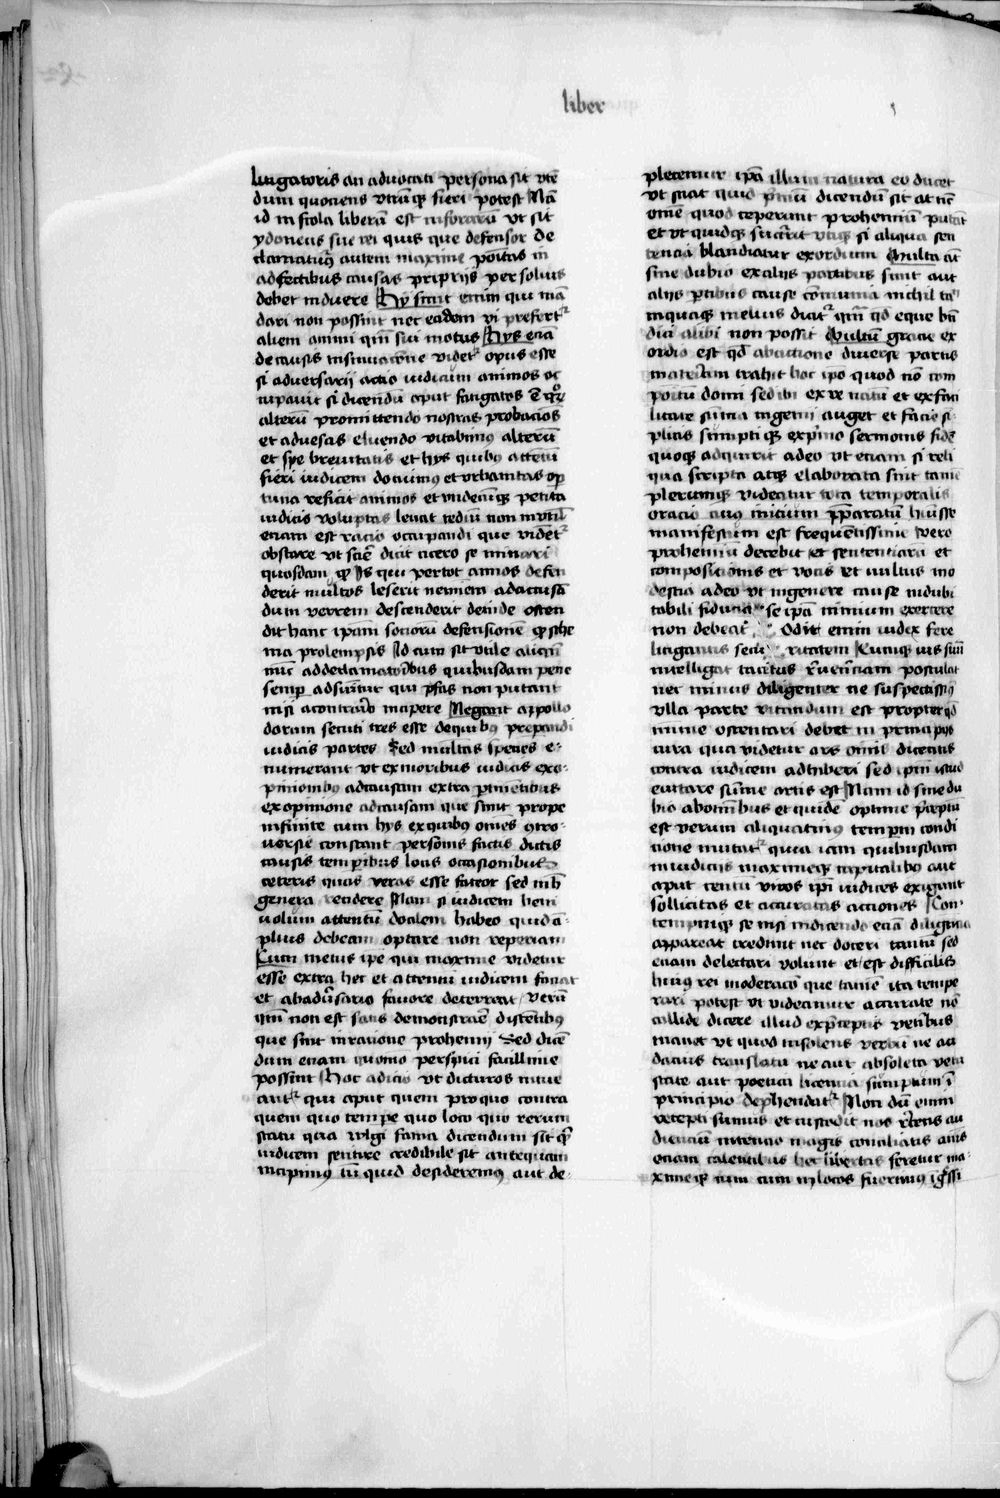 liber
litigatoris an advocati persona sit vtē
dum quotiens vtrūqȝ fieri potest Nā
id in scola liberū est in forū rarū vt sit
ydoneus sue rei quis que defensor de
clamaturꝰ autem maxime positus in
adfectibus causas pripriis persolius
debet induere Hy sunt enim qui mā
dari non possint nec eadem vi prefertᷣ
aliem animi qm̄ sui motus Hys eciā
de causis insinuacōne videtᷣ opus esse
si adversarii actio iudicum animos oc
cupauit si dicendū aput fatigatos ē qꝝ
alterū promittendo nostras probacōes
et aduersas eluendo vitabimꝰ alterū
et spe breuitatis et hys quibꝰ attentū
fieri iudicem docuimꝰ et vrbanitas op
tuna reficit animos et vndecūqȝ petita
iudicis voluptas leuat tediū non inutiɫ
eciam est racio occupandi que videntᷣ
obstare vt sicut dicit cicero se mirari
quosdam qȝ Is qui per tot annos defen
derit multos leserit neminem ad accusā
dum verrem descenderit deinde osten
dit hanc ipsam sociorū defensionē qȝ sche
ma prolempsis Id cum sit vtile aliqn̄
nūc ad declamatoribus quibusdam pene
semꝑ adsumitur qui phas non putant
nisi a contrario incipere Negant appollo
dorum secuti tres esse de quibꝰ preparandi
iudicis partes Sed multas species e-
numerant vt ex moribus iudicis ex o-
pinionibꝰ ad causam extra ptinētibus
ex opinione ad causam que sunt prope
infinite cum hys ex quibꝰ omēs ɔtro-
uersie constant personis factis dictis
causis temporibus locis occasionibus
ceteris quas veras esse fateor sed in hec
genera recidere Nam si iudicem beni
uolum attentū docilem habeo quid ā-
plius debeam optare non reperiam
Cum metus ipse qui maxime videtur
esse extra hec et attentū iudicem faciat
et ab adūsario fauore deterreat verū
qm̄ non est satis demonstrare discentibꝰ
que sint in ratione prohemii Sed dicē
dum eciam quomo perfici facillime
possint Hoc adicio vt dicturos intue
aturᷣ qui aput quem pro quo contra
quem quo tempe quo loco quo rerum
statu qua vulgi fama dicendum sit qȝ
iudicem sentire credibile sit antequam
incipimꝰ tū quid desideremꝰ aut de-
plecemur ipsa illum natura eo ducet
vt sciat quid pͥmū dicendū sit at nūc
omē quod ceperunt prohemiū putāt
et vt quidqȝ succurrit vtiqȝ si aliqua sen
tencia blandiatur exordium Multa aūt
sine dubio ex aliis partibus sunt aut
aliis ꝑtibus cause cōmunia nichil ta
in quaqȝ melius dicitᷣ qm̄ qd eque bn̄
dici alibi non possit Multū gracie ex
ordio est qd ab actione diuerse partis
materiam trahit hoc ipso quod nō com
positū domi sed ibi ex re natū et ex faci
litate summa ingenii auget et facie si
plicis sumptiqȝ ex pͥmo sermonis fidē
quoqȝ adquirit adeo vt eciam si reli
qua scripta atqȝ elaborata sint tamē
plerumqȝ videatur tota temporalis
oracio cuiꝰ inicium pͥparatū habuisse
manifestum est frequentissime vero
prohemiū decebit et sententiarū et
composicionis et vocis et vultus mo
destia adeo vt in genere cause indubi
tabili fiducia se ipsa nimium exercere
non debeat Odit enim iudex fere
litigantis securitatem Cumqȝ ius suū
intelligat tacitus reuerentiam postulat
nec minus diligenter ne suspectissimꝰ
vlla parte vitandum est propter qd
minime ostentari debet in principiis
cura quia videtur ars omīs dicentis
contra iudicem adhiberi sed ipm istud
euitare summe artis est Nam id sine du
bio ab omnibus et quidē optime pͥceptū
est verum aliquatinꝰ tempm condi
cione mutatᷣ quia iam quibusdam
in iudiciis maximeqȝ capitalibꝰ aut
aput centū viros ipi iudices exigunt
sollicitas et accuratas acciones Con-
tempniqȝ se nisi in dicendo eciā diligēcia
appareat credunt nec doceri tantū sed
eciam delectari volunt et est difficilis
huiꝰ rei moderaco que tamē ita tempe
rari potest vt videamur accurate nō
callide dicere illud ex preceptis vetibus
manet vt quod insolens verbū ne au
dacius translatū ne aut absoleta vetu
state aut poetica licencia sumptum ī
principio dephendatᷣ Non dū enim
recepti sumus et custodit nos recens au
dicienciū intencio magis conciliatis aīs
eciam calentibus hec libertas feretur ma-
ximeqȝ cum cum in locos fuerimꝰ īgͤssi